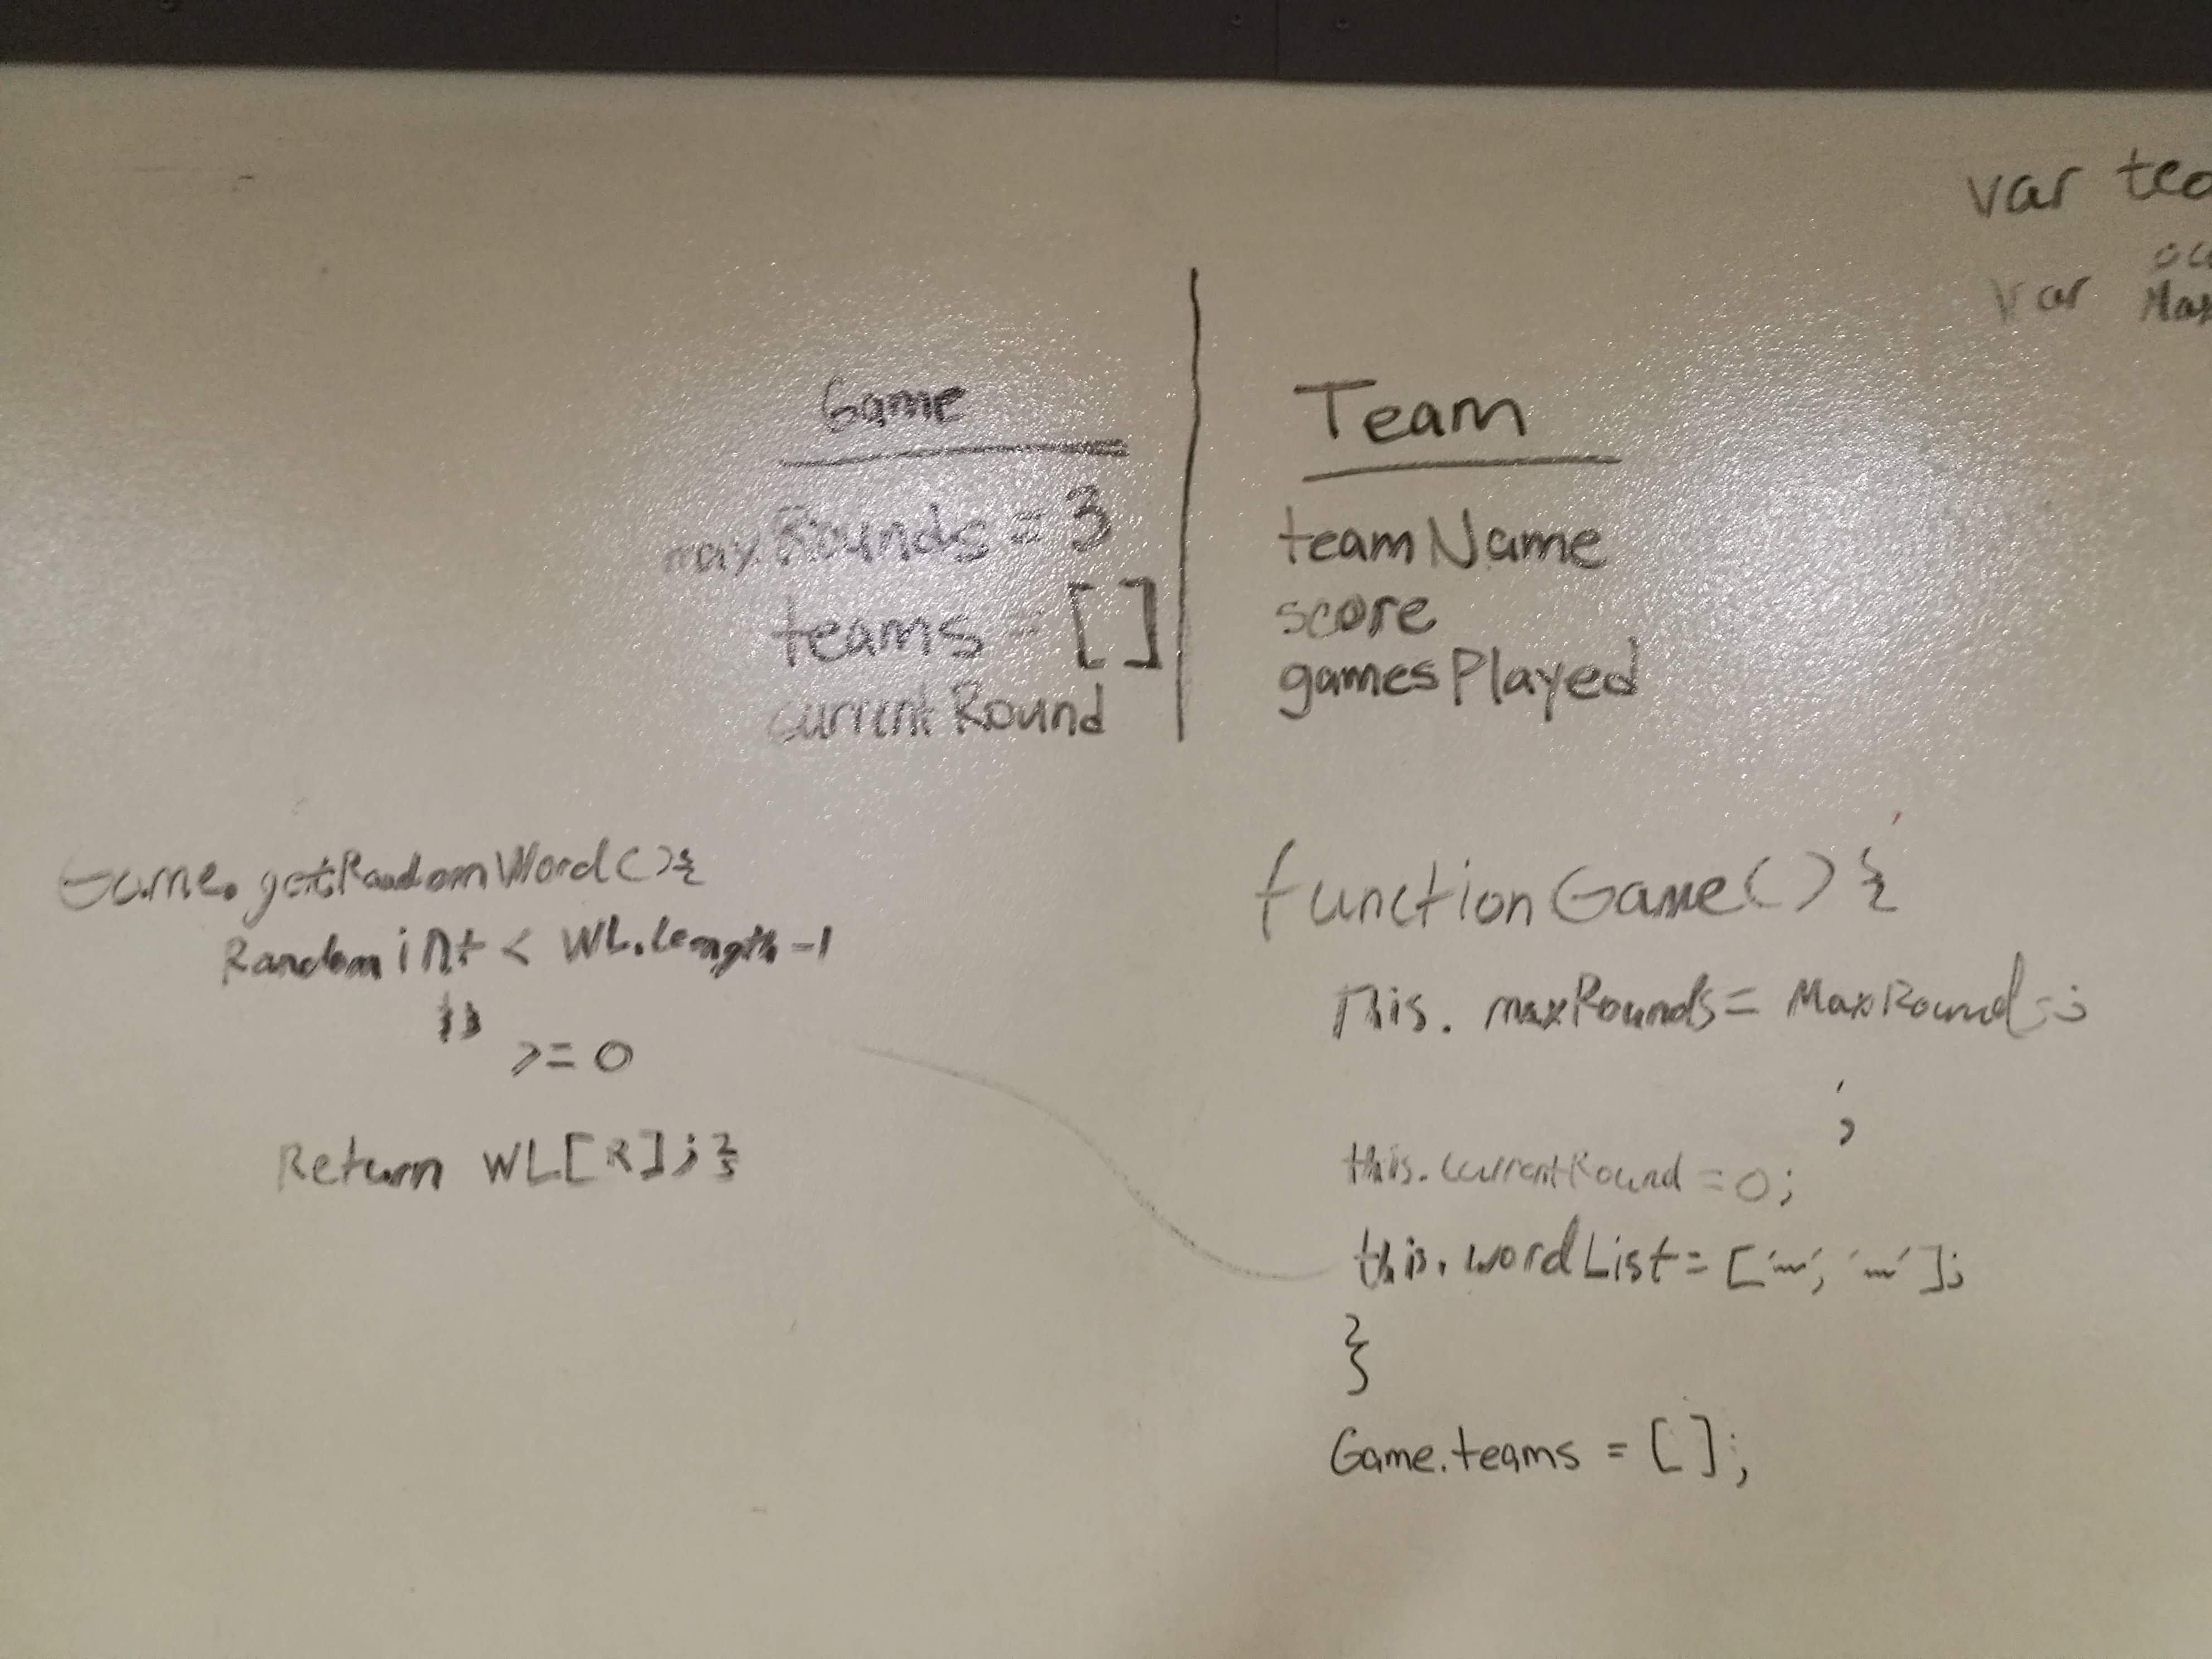 var
var
Game
maxRounds = 3
teams = []
currentRound
Team
teamName
score
gamesPlayed
Game.getRandomWord(){
Random int < WL.length -1
>= 0
Return WL[R];}
function Game(){
This. maxRounds = MaxRounds;
;
this.currentRound = 0;
this.wordList = ['~', '~'];
}
Game.teams = [];